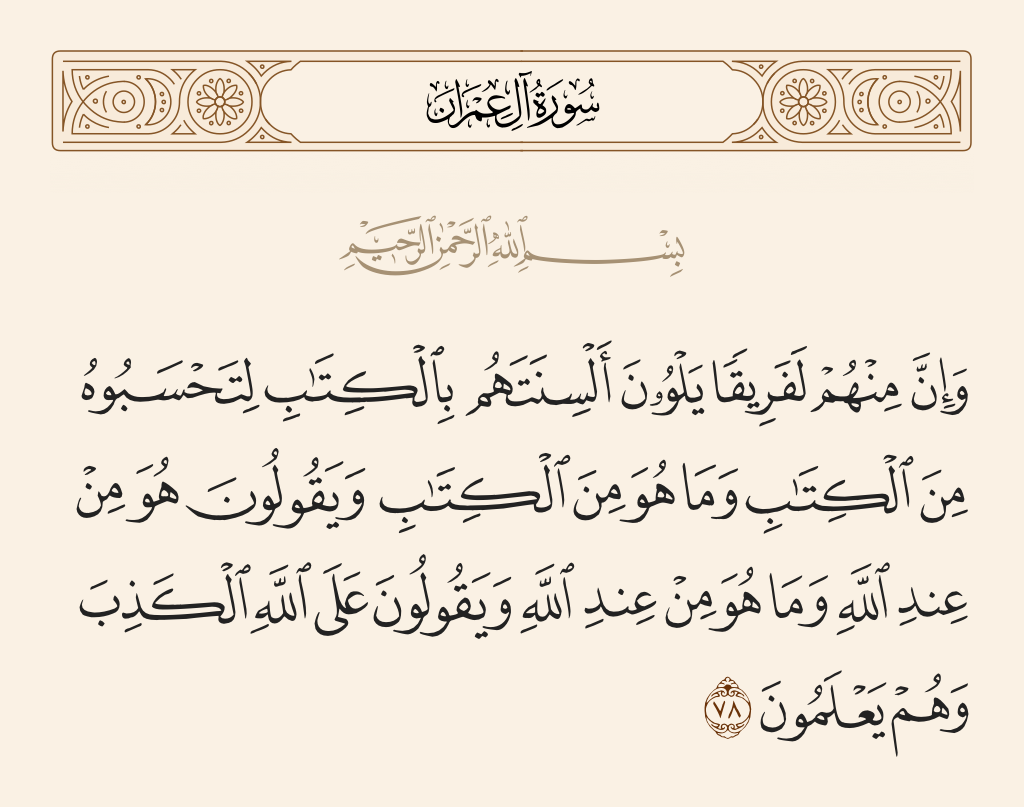 سُورَةُ آلِ عِمْرَانَ
بِسْمِ ٱللَّهِ ٱلرَّحْمَٰنِ ٱلرَّحِيمِ
وَإِنَّ مِنْهُمْ لَفَرِيقًا يَلْوُۥنَ أَلْسِنَتَهُم بِٱلْكِتَٰبِ لِتَحْسَبُوهُ
مِنَ ٱلْكِتَٰبِ وَمَا هُوَ مِنَ ٱلْكِتَٰبِ وَيَقُولُونَ هُوَ مِنْ
عِندِ ٱللَّهِ وَمَا هُوَ مِنْ عِندِ ٱللَّهِ وَيَقُولُونَ عَلَى ٱللَّهِ ٱلْكَذِبَ
وَهُمْ يَعْلَمُونَ ٧٨